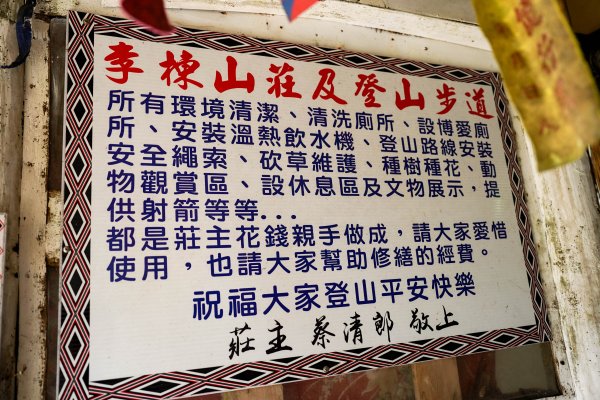 李棟山莊及登山步道
所有環境清潔、清洗廁所、設博愛廁
所、安裝溫熱飲水機、登山路線安裝
安全繩索、砍草維護、種樹種花、動
物觀賞區、設休息區及文物展示，提
供射箭等等...
都是莊主花錢親手做成，請大家愛惜
使用，也請大家幫助修繕的經費。
祝福大家登山平安快樂
莊主 蔡清郎 敬上